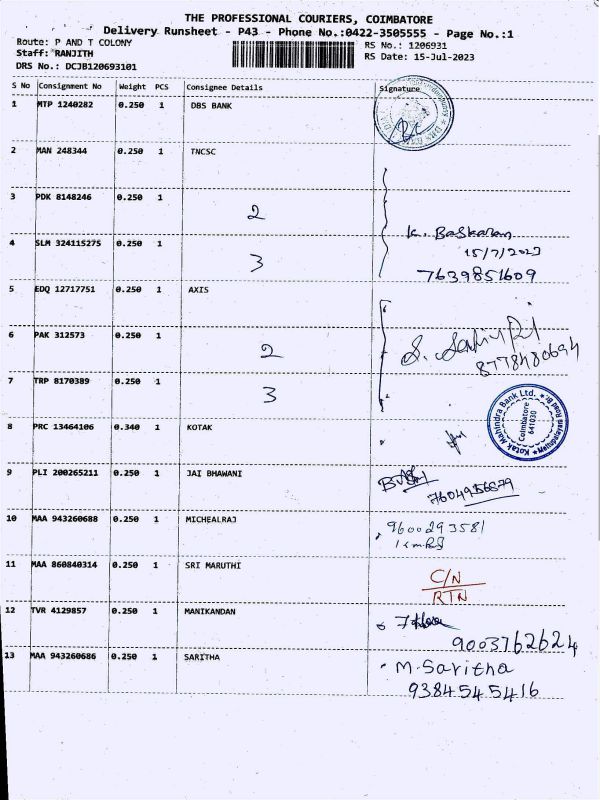 THE PROFESSIONAL COURIERS, COIMBATORE
Delivery Runsheet - P43 - Phone No.:0422-3505555 - Page No.:1
Route: P AND T COLONY
RS No.: 1206931
Staff: RANJITH
RS Date: 15-Jul-2023
DRS No.: DCJB120693101
S No Consignment No Weight PCS Consignee Details Signature
1 MTP 1240282 0.250 1 DBS BANK
2 MAN 248344 0.250 1 TNCSC
3 PDK 8148246 0.250 1
2
K. Baskaran
4 SLM 324115275 0.250 1
15/7/2023
3
7639851609
5 EDQ 12717751 0.250 1 AXIS
6 PAK 312573 0.250 1
2
S.
8778480694
7 TRP 8170389 0.250 1
3
Kotak Mahindra Bank Ltd.
Coimbatore
641030
8 PRC 13464106 0.340 1 KOTAK
9 PLI 200265211 0.250 1 JAI BHAWANI
10 MAA 943260688 0.250 1 MICHEALRAJ
9600293581
11 MAA 860840314 0.250 1 SRI MARUTHI
C/N
RTN
12 TVR 4129857 0.250 1 MANIKANDAN
9003762624
13 MAA 943260686 0.250 1 SARITHA
M. Saritha
9384545416